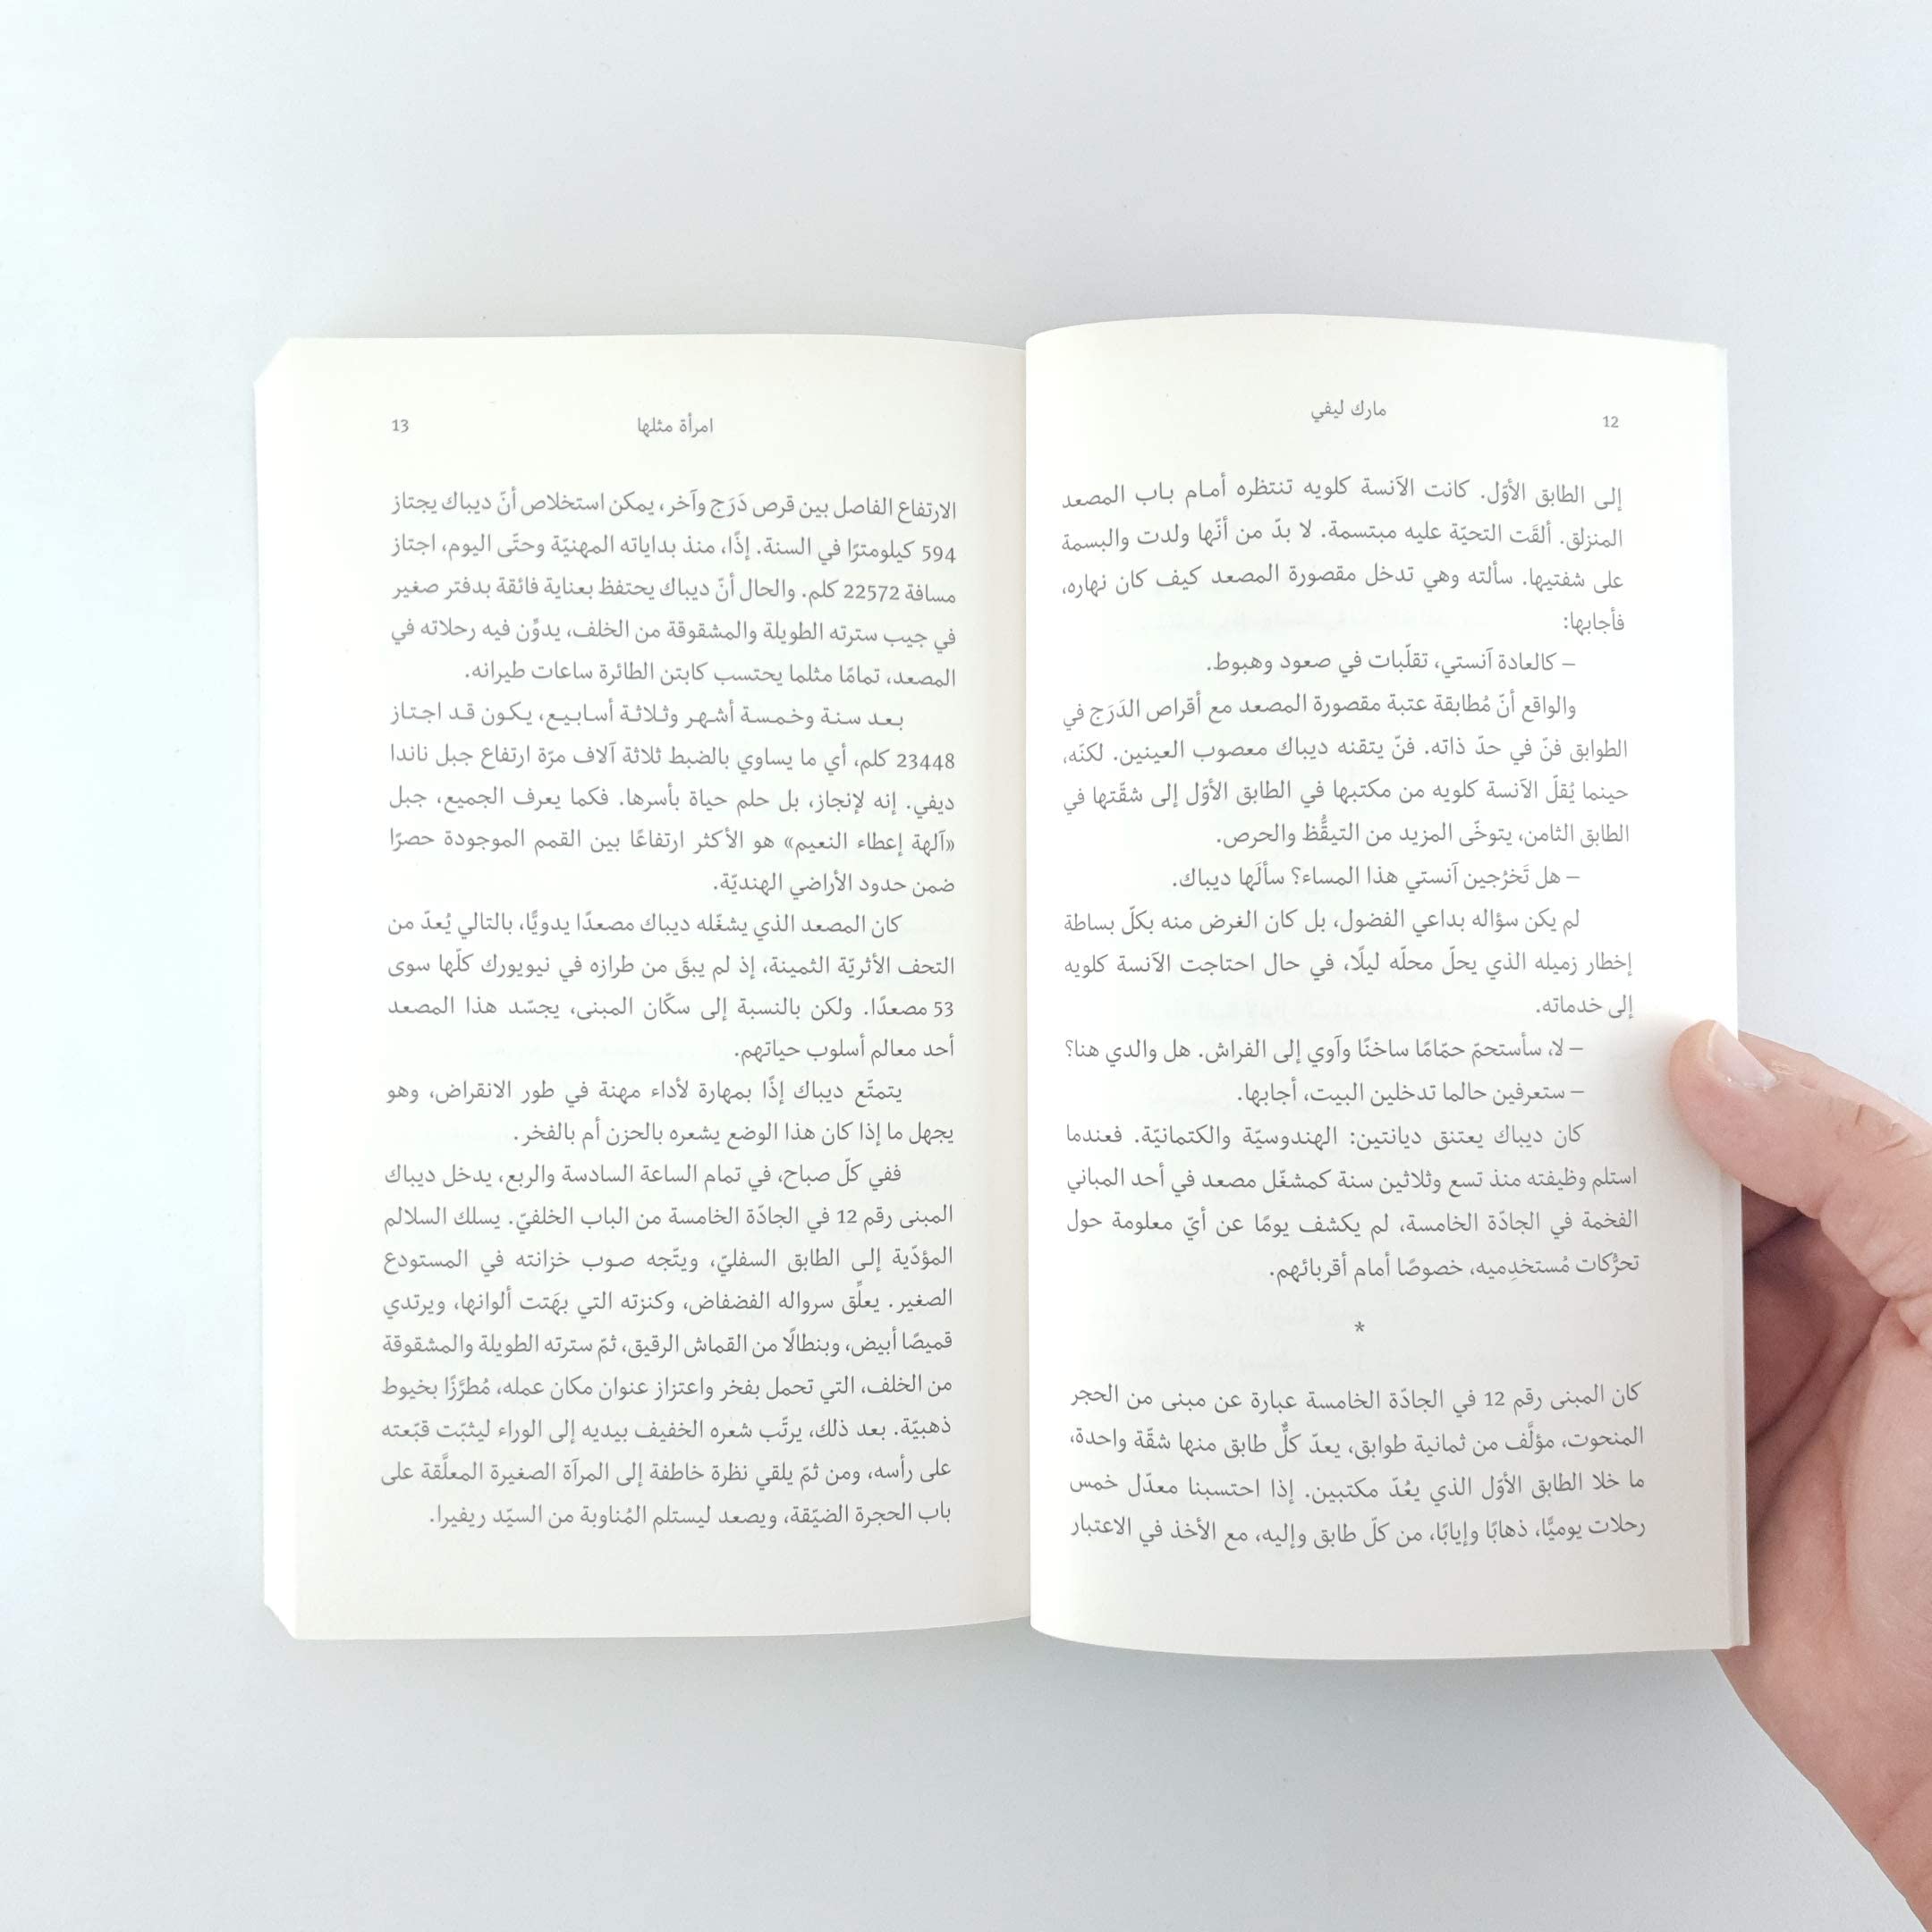 12
مارك ليفي
إلى الطابق الأوّل. كانت الآنسة كلويه تنتظره أمام باب المصعد
المنزلق. ألقَت التحيّة عليه مبتسمة. لا بدّ من أنّها ولدت والبسمة
على شفتيها. سألته وهي تدخل مقصورة المصعد كيف كان نهاره،
فأجابها:
– كالعادة آنستي، تقلّبات في صعود وهبوط.
والواقع أنّ مُطابقة عتبة مقصورة المصعد مع أقراص الدَرَج في
الطوابق فنّ في حدّ ذاته. فنّ يتقنه ديباك معصوب العينين. لكنّه،
حينما يُقلّ الآنسة كلويه من مكتبها في الطابق الأوّل إلى شقّتها في
الطابق الثامن، يتوخّى المزيد من التيقُّظ والحرص.
– هل تَخرُجين آنستي هذا المساء؟ سألَها ديباك.
لم يكن سؤاله بداعي الفضول، بل كان الغرض منه بكلّ بساطة
إخطار زميله الذي يحلّ محلّه ليلًا، في حال احتاجت الآنسة كلويه
إلى خدماته.
– لا، سأستحمّ حمّامًا ساخنًا وآوي إلى الفراش. هل والدي هنا؟
– ستعرفين حالما تدخلين البيت، أجابها.
كان ديباك يعتنق ديانتين: الهندوسيّة والكتمانيّة. فعندما
استلم وظيفته منذ تسع وثلاثين سنة كمشغّل مصعد في أحد المباني
الفخمة في الجادّة الخامسة، لم يكشف يومًا عن أيّ معلومة حول
تحرُّكات مُستخدِميه، خصوصًا أمام أقربائهم.
*
كان المبنى رقم 12 في الجادّة الخامسة عبارة عن مبنى من الحجر
المنحوت، مؤلَّف من ثمانية طوابق، يعدّ كلٌّ طابق منها شقّة واحدة،
ما خلا الطابق الأوّل الذي يعُدّ مكتبين. إذا احتسبنا معدّل خمس
رحلات يوميًّا، ذهابًا وإيابًا، من كلّ طابق وإليه، مع الأخذ في الاعتبار
امرأة مثلها
13
الارتفاع الفاصل بين قرص دَرَج وآخر، يمكن استخلاص أنّ ديباك يجتاز
594 كيلومترًا في السنة. إذًا، منذ بداياته المهنيّة وحتّى اليوم، اجتاز
مسافة 22572 كلم. والحال أنّ ديباك يحتفظ بعناية فائقة بدفتر صغير
في جيب سترته الطويلة والمشقوقة من الخلف، يدوِّن فيه رحلاته في
المصعد، تمامًا مثلما يحتسب كابتن الطائرة ساعات طيرانه.
بعد سنة وخمسة أشهر وثلاثة أسابيع، يكون قد اجتاز
23448 كلم، أي ما يساوي بالضبط ثلاثة آلاف مرّة ارتفاع جبل ناندا
ديفي. إنه لإنجاز، بل حلم حياة بأسرها. فكما يعرف الجميع، جبل
«آلهة إعطاء النعيم» هو الأكثر ارتفاعًا بين القمم الموجودة حصرًا
ضمن حدود الأراضي الهنديّة.
كان المصعد الذي يشغّله ديباك مصعدًا يدويًّا، بالتالي يُعدّ من
التحف الأثريّة الثمينة، إذ لم يبقَ من طرازه في نيويورك كلّها سوى
53 مصعدًا. ولكن بالنسبة إلى سكّان المبنى، يجسّد هذا المصعد
أحد معالم أسلوب حياتهم.
يتمتّع ديباك إذًا بمهارة لأداء مهنة في طور الانقراض، وهو
يجهل ما إذا كان هذا الوضع يشعره بالحزن أم بالفخر.
ففي كلّ صباح، في تمام الساعة السادسة والربع، يدخل ديباك
المبنى رقم 12 في الجادّة الخامسة من الباب الخلفيّ. يسلك السلالم
المؤدّية إلى الطابق السفليّ، ويتّجه صوب خزانته في المستودع
الصغير. يعلِّق سرواله الفضفاض، وكنزته التي بهَتت ألوانها، ويرتدي
قميصًا أبيض، وبنطالًا من القماش الرقيق، ثمّ سترته الطويلة والمشقوقة
من الخلف، التي تحمل بفخر واعتزاز عنوان مكان عمله، مُطرَّزًا بخيوط
ذهبيّة. بعد ذلك، يرتّب شعره الخفيف بيديه إلى الوراء ليثبّت قبّعته
على رأسه، ومن ثمّ يلقي نظرة خاطفة إلى المرآة الصغيرة المعلَّقة على
باب الحجرة الضيّقة، ويصعد ليستلم المُناوبة من السيّد ريفيرا.